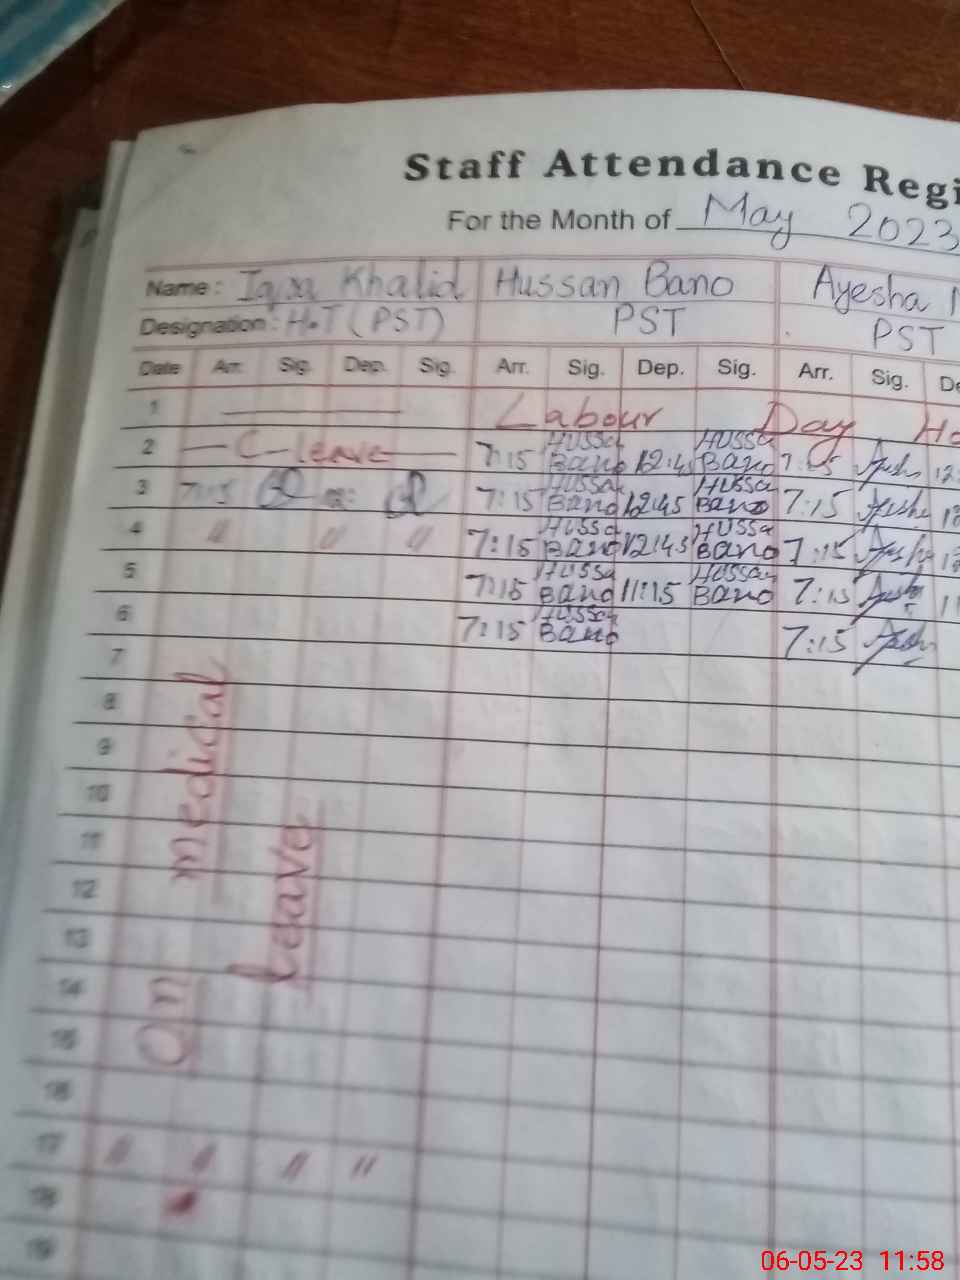 Staff Attendance Regi
For the Month of May 2023
Name : Iqra Khalid Hussan Bano Ayesha
Designation : H.T (PST) PST PST
Date Arr. Sig. Dep. Sig. Arr. Sig. Dep. Sig. Arr. Sig. De
1 Labour Day Ho
2 C-leave 7:15 Hussan Bano 12:45 Hussan Bano 7:15
3 7:15 7:15 Hussan Bano 12:45 Hussan Bano 7:15
4 " " " 7:15 Hussan Bano 12:45 Hussan Bano 7:15
5 7:15 Hussan Bano 11:15 Hussan Bano 7:15
6 7:15 Hussan Bano 7:15
7
8
9
10
11
12
13
14
15
16
17 " " " "
18
19
On medical
leave
06-05-23 11:58